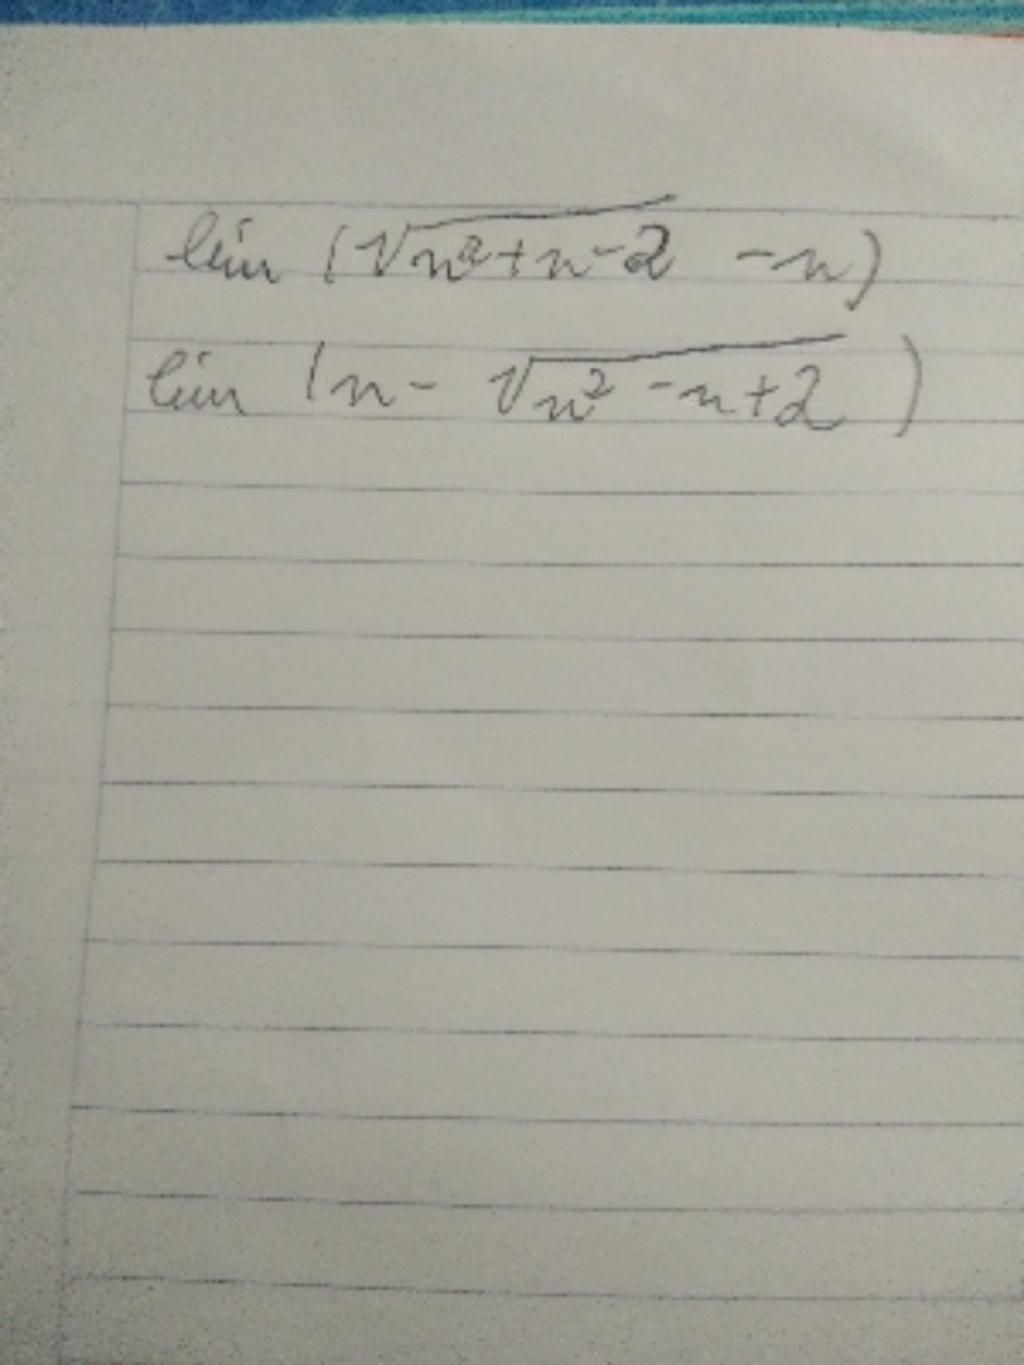 lim (√(n²+n-2) -n)
lim (n- √(n²-n+2))